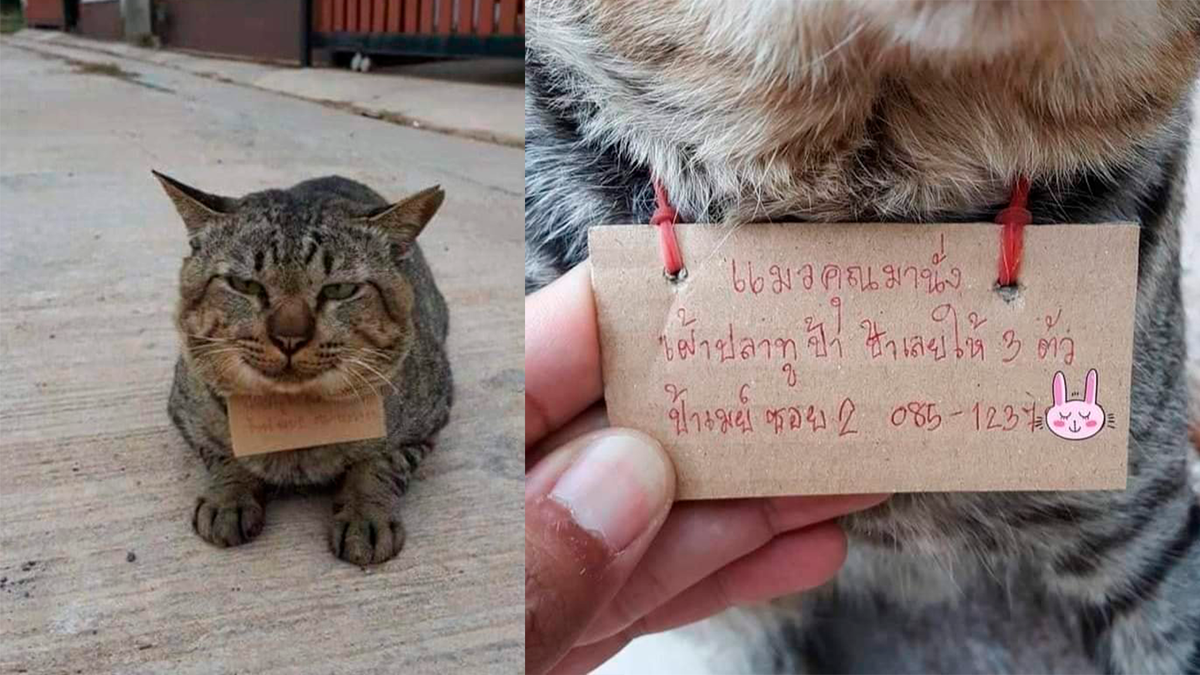 แมวคุณมานั่ง
เฝ้าปลาทู ป้า ป้าเลยให้ 3 ตัว
ป้าเมย์ ซอย 2 085-1237